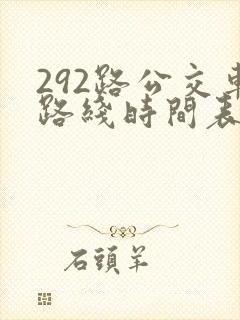 292路公交車
路綫時間表
石頭羊